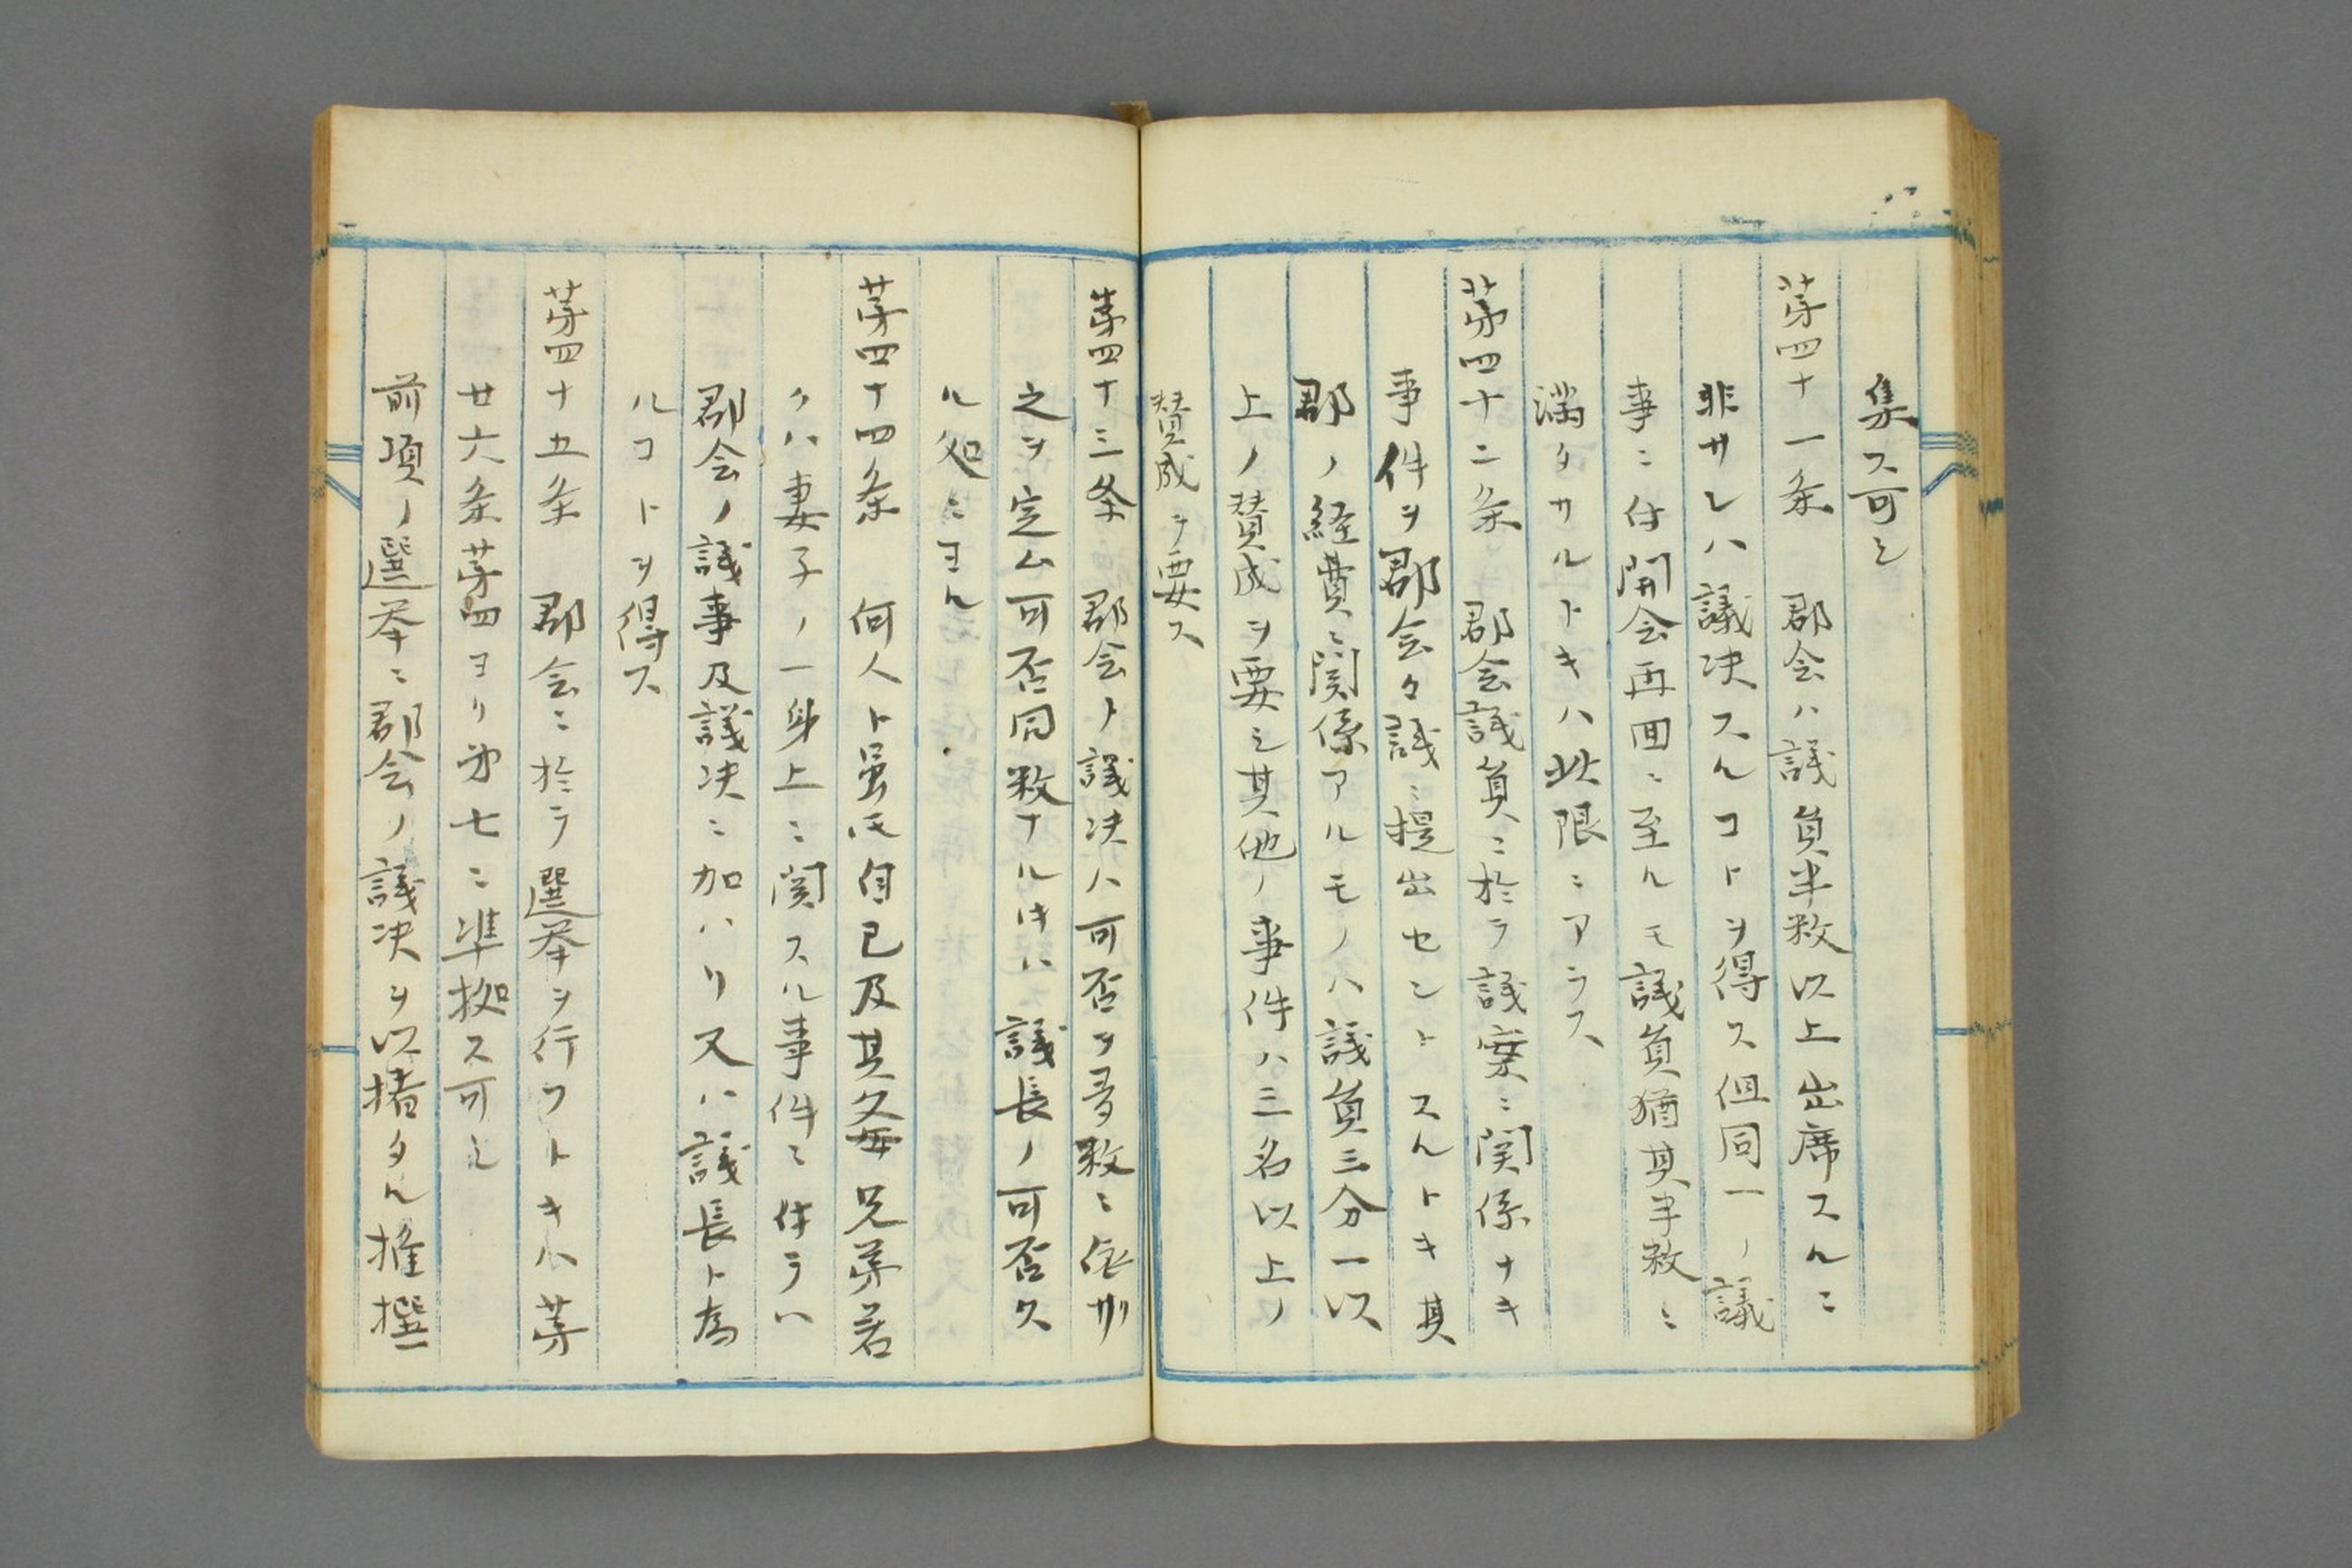 集ス可シ
第四十一条　郡会ハ議員半数以上出席スルニ
非サレハ議决スルコトヲ得ス但同一ノ議
事ニ付開会再回ニ至ルモ議員猶其半数ニ
満タサルトキハ此限ニアラス
第四十二条　郡会議員ニ於テ議案ニ関係ナキ
事件ヲ郡会々議ニ提出セントスルトキ其
郡ノ経費ニ関係アルモノハ議員三分一以
上ノ賛成ヲ要シ其他ノ事件ハ三名以上ノ
賛成ヲ要ス
第四十三条　郡会ノ議决ハ可否ヲ多数ニ依リ
之ヲ定ム可否同数ナルキハ議長ノ可否ス
ル処ニヨル
第四十四条　何人ト虽氏自己及其父母兄弟若
クハ妻子ノ一身上ニ関スル事件ニ付テハ
郡会ノ議事及議决ニ加ハリ又ハ議長ト為
ルコトヲ得ス
第四十五条　郡会ニ於テ選挙ヲ行フトキハ第
廿六条第四ヨリ第七ニ準拠ス可シ
前項ノ選挙ニ郡会ノ議决ヲ以括タル推撰